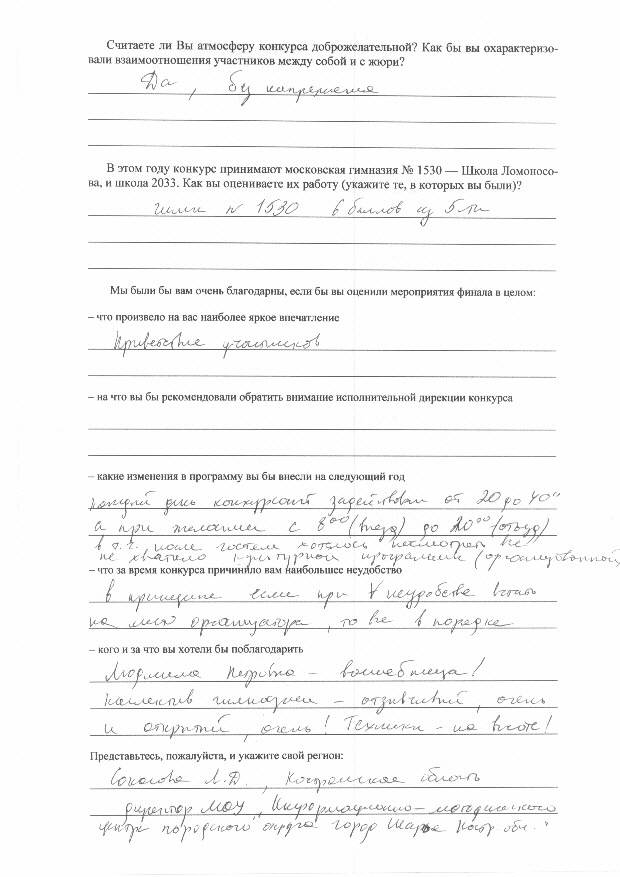 Считаете ли Вы атмосферу конкурса доброжелательной? Как бы вы охарактеризо-
вали взаимоотношения участников между собой и с жюри?
Да, без напряжения
В этом году конкурс принимают московская гимназия № 1530 — Школа Ломоносо-
ва, и школа 2033. Как вы оцениваете их работу (укажите те, в которых вы были)?
гимн N 1530 6 баллов из 5-ти
Мы были бы вам очень благодарны, если бы вы оценили мероприятия финала в целом:
– что произвело на вас наиболее яркое впечатление
Приветствие участников
– на что вы бы рекомендовали обратить внимание исполнительной дирекции конкурса
– какие изменения в программу вы бы внесли на следующий год
каждый день конкурсант задействован от 20 до 40"
а при желании с 8⁰⁰ (въезд) до 20⁰⁰ (отъезд)
в т.ч. после хотелось посмотреть
не хватило культурной программы (организованной
– что за время конкурса причинило вам наибольшее неудобство
в принципе если при ∀ неудобстве встать
на место организатора, то все в порядке
– кого и за что вы хотели бы поблагодарить
Людмила Петровна – волшебница!
Коллектив гимназии – отзывчивый, очень
и открытый, очень! Техники – на высоте!
Представьтесь, пожалуйста, и укажите свой регион:
Соколова Л.Д., Костромская область
директор МОУ "Информационно – методического
центра городского округа город Шарья Костр обл."